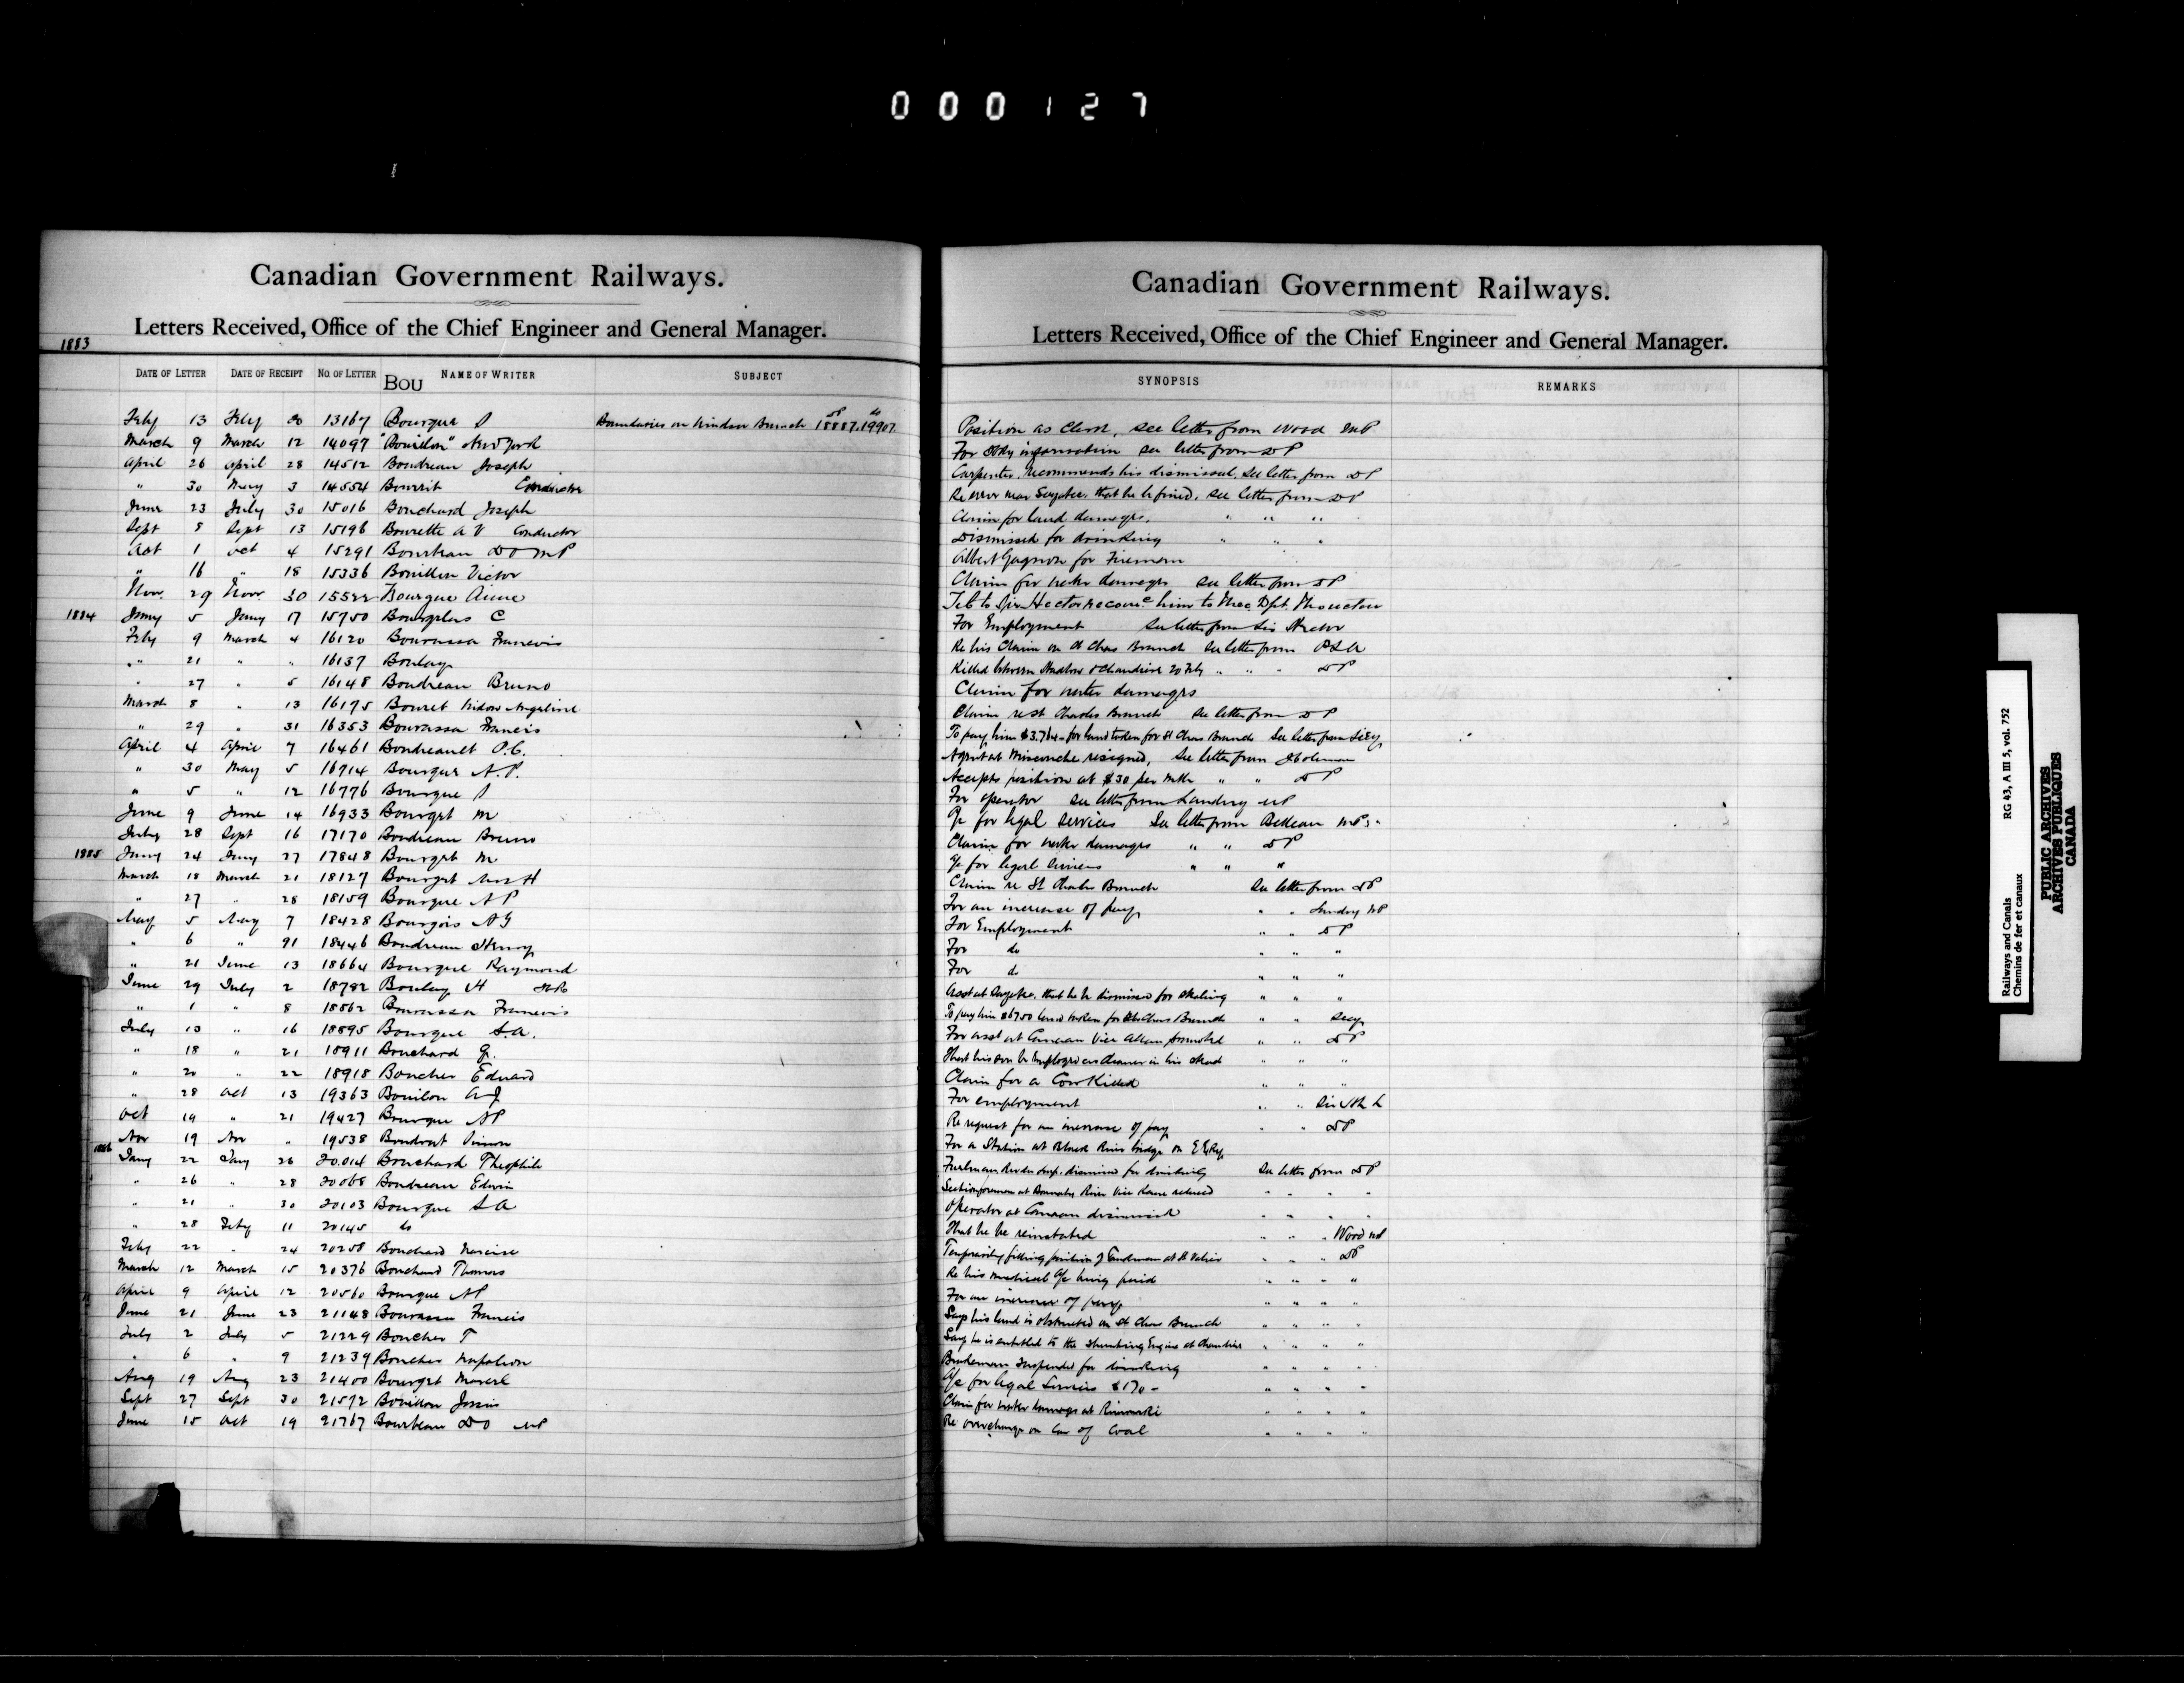 000127
Canadian Government Railways.
Letters Received, Office of the Chief Engineer and General Manager.
1883
DATE OF LETTER DATE OF RECEIPT NO. OF LETTER NAME OF WRITER SUBJECT
BOU
Feby 13 Feby 20 13167 Bourque
March 9 March 12 14097 "Bouillon" New York
April 26 April 28 14512 Boudreau Joseph
" 30 May 3 14554 Conductor
June 23 July 30 15016 Bouchard Joseph
Sept 8 Sept 13 15196 Bourette A V Conductor
Oct 1 Oct 4 15291 Bourbeau D O MP
" 16 " 18 15336 Bouillon Victor
Nov 29 Nov 30 15522 Bourque
1884 Jany 5 Jany 17 15750 C
Feby 9 March 4 16120 Bourassa Francois
" 21 " " 16137 Boulay
" 27 " 5 16148 Boudreau Bruno
March 8 " 13 16195 Widow Angeline
" 29 " 31 16353 Bourassa Francis
April 4 April 7 16461 Boudreault
" 30 May 5 16714 Bourque A.P.
" 5 " 12 16776 Bourque
June 9 June 14 16933 Bourget M
July 28 Sept 16 17170 Boudreau Bruno
1885 Jany 24 Jany 27 17848 Bourget M
March 18 March 21 18127 Bourget Mrs H
" 27 " 28 18159 Bourque A P
May 5 May 7 18428 Bourgois
" 6 " 18446 Boudreau Henry
" 21 June 13 18664 Bourque Raymond
June 29 July 2 18782 Boulay H
" 1 " 8 18862 Bourassa Francois
July 13 " 16 18895 Bourque S.A.
" 18 " 21 18911 Bouchard
" 20 " 22 18918 Boucher Edward
" 28 Oct 13 19363 Bouillon A J
Oct 19 " 21 19427 Bourque A P
Nov 19 Nov " 19538 Boudrot
1886 Jany 22 Jany 26 20.014 Bouchard Theophile
" 26 " 28 20068 Boudreau Edwin
" 21 " 30 20103 Bourque S A
" 28 Feby 11 20145 do
Feby 22 " 24 20258 Bouchard Narcisse
March 12 March 15 20376 Bouchard Thomas
April 9 April 12 20560 Bourque A P
June 21 June 23 21148 Bourassa Francis
July 2 July 5 21229 Boucher T
" 6 " 9 21239 Boucher Napoleon
Aug 19 Aug 23 21400 Bourget
Sept 27 Sept 30 21572 Bouillon
June 15 Oct 19 21767 Bourbeau D O MP
Boundaries on Windsor Branch 18887 19907
Canadian Government Railways.
Letters Received, Office of the Chief Engineer and General Manager.
SYNOPSIS REMARKS
Position as Clerk, see letter from Wood MP
For information see letter from DP
Carpenter, Recommends his dismissal, see letter from DP
Re error near that he be fined, see letter from DP
Claim for land damages, " " "
Dismissed for drinking " " "
Albert Gagnon for Fireman
Claim for water damages see letter from DP
Tel to Sir Hector him to Dpt. Moncton
For Employment see letter from Sir Hector
Re his Claim on St Chas Branch see letter from
Killed between Hadlow & Chaudiere 20 Feby " " " DP
Claim for water damages
Claim re St Charles Branch see letter from DP
To pay him $3.764 for land taken for St Chas Branch See letter from Secy
Agent at resigned, see letter from
Accepts position at $30 per mth " " DP
For operator see letter from Landry MP
A/c for legal Services See letter from MP
Claim for water damages " " DP
A/c for legal Services " " "
Claim re St Charles Branch See letter from DP
For an increase of pay " " Landry MP
For Employment " " DP
For do " " "
For do " " "
that he be dismissed for stealing " " "
To pay him land taken for St Chas Branch " " Secy
For asst at Vice " " DP
That his son be employed as cleaner in his stead " " "
Claim for a Cow Killed " " "
For employment " " Sir
Re request for an increase of pay " " DP
For a Station at River bridge on
dismissed for drinking See letter from DP
Section foreman at River Vice reduced " " " "
Operator at dismissed " " " "
That he be reinstated " " " Wood MP
Temporarily filling position of at St Valier " " " DP
Re his medical A/c being paid " " " "
For an increase of pay " " " "
Says his land is obstructed on St Chas Branch " " " "
Says he is entitled to the Shunting Engine at Chaudiere " " " "
Brakeman suspended for drinking " " " "
A/c for legal Services $170 - " " " "
Claim for water damages at Rimouski " " " "
Re overcharge on Car of Coal " " " "
Railways and Canals RG 43, A III 5, vol. 752
Chemins de fer et canaux
PUBLIC ARCHIVES
ARCHIVES PUBLIQUES
CANADA